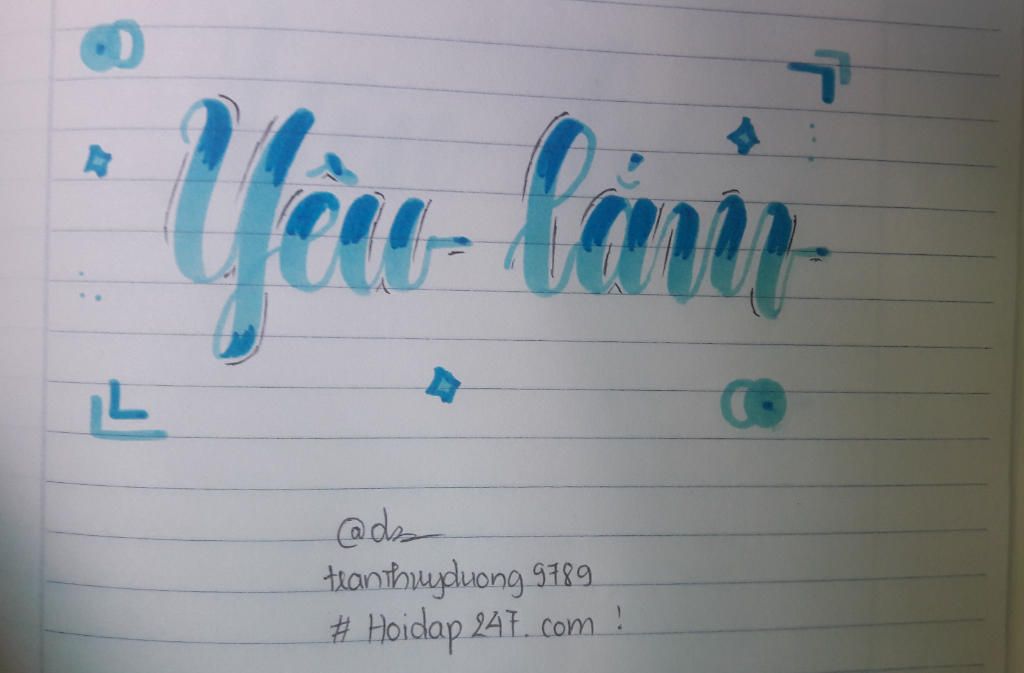 Yêu lắm
@dz
tranthuyduong 9789
# Hoidap 247. com !